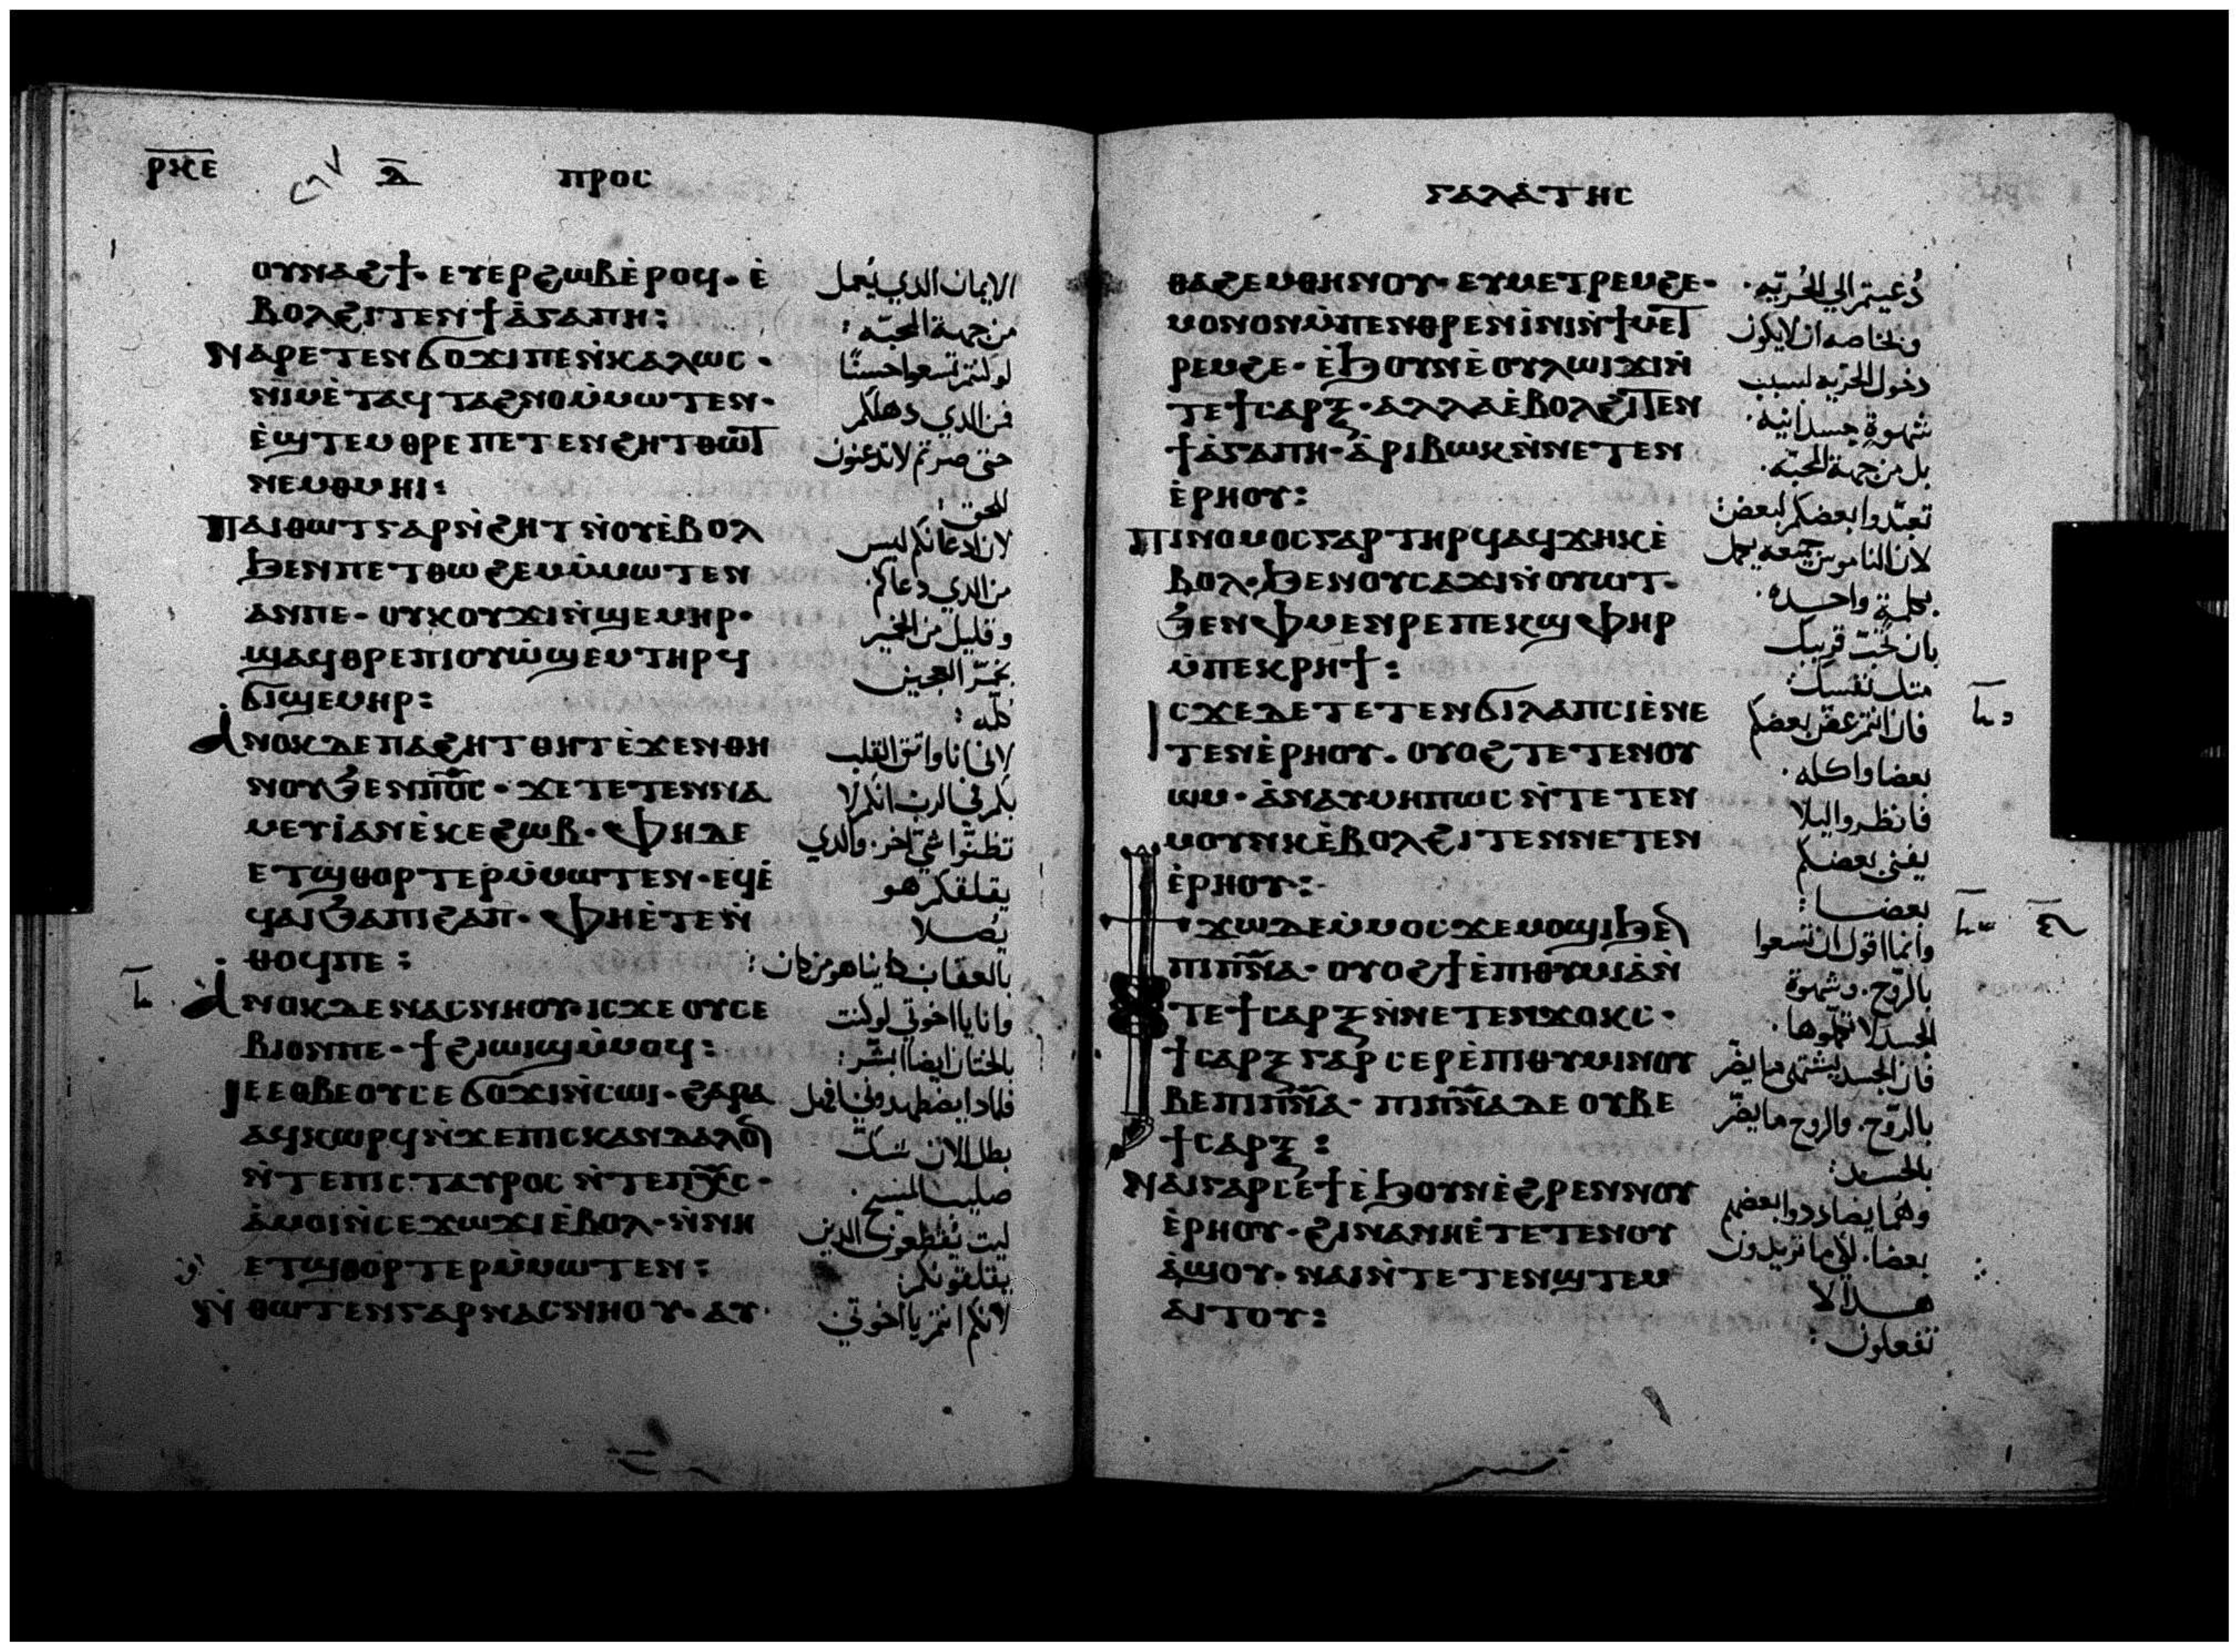 ⲣⲕⲉ
ⲇ
ⲡⲣⲟⲥ
ⲟⲩⲛⲁϩϯ· ⲉⲩⲉⲣϩⲱⲃ ⲉ̀ⲣⲟϥ· ⲉ̀
ⲃⲟⲗϩⲓⲧⲉⲛ ϯⲁ̀ⲅⲁⲡⲏ:
ⲛⲁⲣⲉⲧⲉⲛϭⲟϫⲓ ⲡⲉ ⲛ̀ⲕⲁⲗⲱⲥ·
ⲛⲓⲙ ⲉ̀ⲧⲁϥⲧⲁϩⲛⲟ ⲙ̀ⲙⲱⲧⲉⲛ·
ⲉ̀ϣⲧⲉⲙⲑⲣⲉ ⲡⲉⲧⲉⲛϩⲏⲧ ⲑⲱⲧ
ⲛⲉⲙ ⲑⲙⲏⲓ:
ⲡⲁⲓⲑⲱⲧ ⲅⲁⲣ ⲛ̀ϩⲏⲧ ⲛ̀ⲟⲩⲉ̀ⲃⲟⲗ
ϧⲉⲛ ⲡⲉⲧⲑⲱϩⲉⲙ ⲙ̀ⲙⲱⲧⲉⲛ
ⲁⲛ ⲡⲉ· ⲟⲩⲕⲟⲩϫⲓ ⲛ̀ϣⲉⲙⲏⲣ·
ϣⲁϥⲑⲣⲉ ⲡⲓⲟⲩⲱ̀ϣⲉⲙ ⲧⲏⲣϥ
ϭⲓϣⲉⲙⲏⲣ:
ⲁ̀ⲛⲟⲕ ⲇⲉ ⲡⲁϩⲏⲧ ⲑⲏⲧ ⲉ̀ϫⲉⲛ ⲑⲏ
ⲛⲟⲩ ϧⲉⲛ ⲡ⳪· ϫⲉ ⲧⲉⲧⲉⲛⲛⲁ
ⲙⲉⲩⲓ̀ ⲁⲛ ⲉ̀ⲕⲉϩⲱⲃ· ⲫⲏ ⲇⲉ
ⲉⲧϣⲑⲟⲣⲧⲉⲣ ⲙ̀ⲙⲱⲧⲉⲛ· ⲉϥⲉ̀
ϥⲁⲓ ϧⲁ ⲡⲓϩⲁⲡ· ⲫⲏ ⲉ̀ⲧⲉ ⲛ̀
ⲑⲟϥ ⲡⲉ:
ⲁ̀ⲛⲟⲕ ⲇⲉ ⲛⲁⲥⲛⲏⲟⲩ· ⲓⲥϫⲉ ⲟⲩⲥⲉ
ⲃⲓ ⲟⲛ ⲡⲉ· ϯϩⲓⲱⲓϣ ⲙ̀ⲙⲟϥ:
ⲓⲉ ⲉⲑⲃⲉ ⲟⲩ ⲥⲉϭⲟϫⲓ ⲛ̀ⲥⲱⲓ· ϩⲁⲣⲁ
ⲁϥⲕⲱⲣϥ ⲛ̀ϫⲉ ⲡⲓⲥⲕⲁⲛⲇⲁⲗⲟⲛ
ⲛ̀ⲧⲉ ⲡⲓⲥⲧⲁⲩⲣⲟⲥ ⲛ̀ⲧⲉ ⲡⲭ̅ⲥ̅·
ⲁ̀ⲙⲟⲓ ⲛ̀ⲥⲉϫⲱϫⲓ ⲉ̀ⲃⲟⲗ· ⲛ̀ⲛⲏ
ⲉⲧϣⲑⲟⲣⲧⲉⲣ ⲙ̀ⲙⲱⲧⲉⲛ:
ⲛ̀ⲑⲱⲧⲉⲛ ⲅⲁⲣ ⲛⲁⲥⲛⲏⲟⲩ· ⲁⲩ
الايمان الدي يُعمل
من جهة المحبّه:
لو كنتم تسعوا حسنًا
فمن الدي دهلكم
حتى صرتم لا تدعنون
للحق:
لان ادعانكم ليس
من الدي دعاكم.
وقليل من الخمير
يخمّر العجين
كلّه:
لاني انا واثق القلب
بكم في الرب انكم لا
تظنّوا شي اخر. والدي
يقلقكم هو
يصلا
بالعقاب كاينا هو من كان:
وانا يا اخوتي لو كنت
بالختان ايضا ابشّر:
فلمادا يضطهدوني افهل
بطل الان شكّ
صليب المسيح.
ليت يُقطعون الدين
يقلقونكم:
لانكم انتم يا اخوتي
ⲅⲁⲗⲁ̀ⲧⲏⲥ
ⲑⲁϩⲉⲙ ⲑⲏⲛⲟⲩ· ⲉⲩⲙⲉⲧⲣⲉⲙϩⲉ·
ⲙⲟⲛⲟⲛ ⲙ̀ⲡⲉⲛⲑⲣⲉⲛⲓ̀ⲛⲓ ⲛ̀ϯⲙⲉⲧ
ⲣⲉⲙϩⲉ· ⲉ̀ϧⲟⲩⲛ ⲉ̀ⲟⲩⲗⲱⲓϫⲓ ⲛ̀
ⲧⲉ ϯⲥⲁⲣⲝ· ⲁⲗⲗⲁ ⲉ̀ⲃⲟⲗϩⲓⲧⲉⲛ
ϯⲁ̀ⲅⲁⲡⲏ· ⲁ̀ⲣⲓⲃⲱⲕ ⲛ̀ⲛⲉⲧⲉⲛ
ⲉ̀ⲣⲏⲟⲩ:
ⲡⲓⲛⲟⲙⲟⲥ ⲅⲁⲣ ⲧⲏⲣϥ ⲁϥϫⲏⲕ ⲉ̀
ⲃⲟⲗ· ϧⲉⲛ ⲟⲩⲥⲁϫⲓ ⲛ̀ⲟⲩⲱⲧ·
ϧⲉⲛ ⲫⲙⲉⲛⲣⲉ ⲡⲉⲕϣⲫⲏⲣ
ⲙ̀ⲡⲉⲕⲣⲏϯ:
ⲓⲥϫⲉ ⲇⲉ ⲧⲉⲧⲉⲛϭⲓⲗⲁⲡⲥⲓ ⲉ̀ⲛⲉ
ⲧⲉⲛⲉ̀ⲣⲏⲟⲩ. ⲟⲩⲟϩ ⲧⲉⲧⲉⲛⲟⲩ
ⲱⲙ· ⲁ̀ⲛⲁⲩ ⲙⲏⲡⲱⲥ ⲛ̀ⲧⲉⲧⲉⲛ
ⲙⲟⲩⲛⲕ ⲉ̀ⲃⲟⲗϩⲓⲧⲉⲛ ⲛⲉⲧⲉⲛ
ⲉ̀ⲣⲏⲟⲩ:
ϯϫⲱ ⲇⲉ ⲙ̀ⲙⲟⲥ ϫⲉ ⲙⲟϣⲓ ϧⲉⲛ
ⲡⲓⲡ̅ⲛ̅ⲁ̅· ⲟⲩⲟϩ ϯⲉ̀ⲡⲓⲑⲩⲙⲓⲁ ⲛ̀
ⲧⲉ ϯⲥⲁⲣⲝ ⲛ̀ⲛⲉⲧⲉⲛϫⲟⲕⲥ·
ϯⲥⲁⲣⲝ ⲅⲁⲣ ⲥⲉⲣⲉ̀ⲡⲓⲑⲩⲙⲓⲛ ⲟⲩ
ⲃⲉ ⲡⲓⲡ̅ⲛ̅ⲁ̅· ⲡⲓⲡ̅ⲛ̅ⲁ̅ ⲇⲉ ⲟⲩⲃⲉ
ϯⲥⲁⲣⲝ:
ⲛⲁⲓ ⲅⲁⲣ ⲥⲉϯ ⲉ̀ϧⲟⲩⲛ ⲉ̀ϩⲣⲉⲛ ⲛⲟⲩ
ⲉ̀ⲣⲏⲟⲩ· ϩⲓⲛⲁ ⲛⲏ ⲉ̀ⲧⲉⲧⲉⲛⲟⲩ
ⲁ̀ϣⲟⲩ· ⲛⲁⲓ ⲛ̀ⲧⲉⲧⲉⲛϣⲧⲉⲙ
ⲁⲓⲧⲟⲩ:
دُعيتم الي الحُريّه.
وبخاصه ان لا يكون
دخول الحريه لسبب
شهوة جسدانيه.
بل من جهة المحبّه.
تعبّدوا بعضكم لبعض:
لان الناموس جميعه يكمل
بكلمةٍ واحده.
بان تحبّ قريبك
مثل نفسك:
فان انتم عضّ بعضكم
بعضا واكله.
فانظروا ليلا
يفنى بعضكم
بعضا:
وانما اقول ان تسعوا
بالروّح. وشهوة
الجسد لا تكمّلوها.
فان الجسد يشتهى ما يضّر
بالروّح. والروح ما يضّر
بالجسد:
وهُما يضاددوا بعضهم
بعضا. لان ما تريدون
هدا لا
تفعلون: